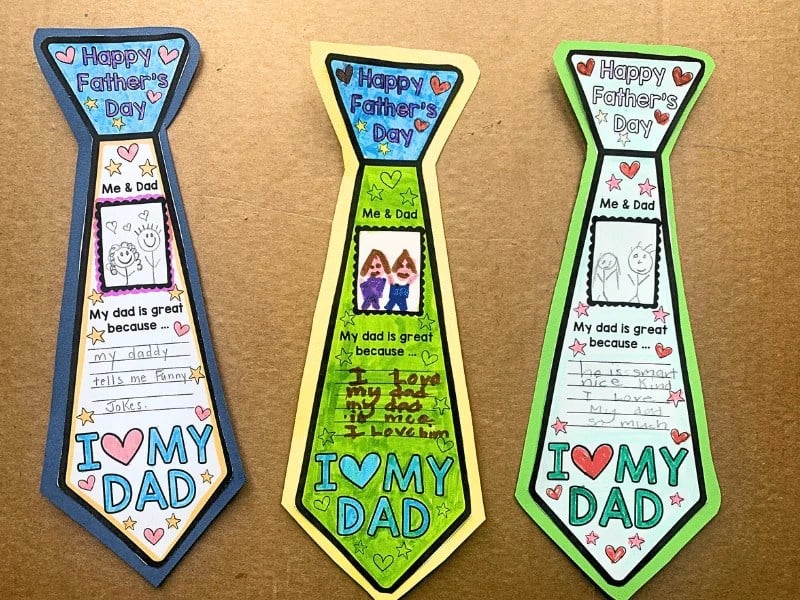 Happy
Father's
Day
Me & Dad
My dad is great
because ...
my daddy
tells me Funny
Jokes.
I MY
DAD
Happy
Father's
Day
Me & Dad
My dad is great
because ...
I Love
my dad
my dad
is nice.
I Love him
I MY
DAD
Happy
Father's
Day
Me & Dad
My dad is great
because ...
he is smart
nice kind
I Love
My dad
so much
I MY
DAD